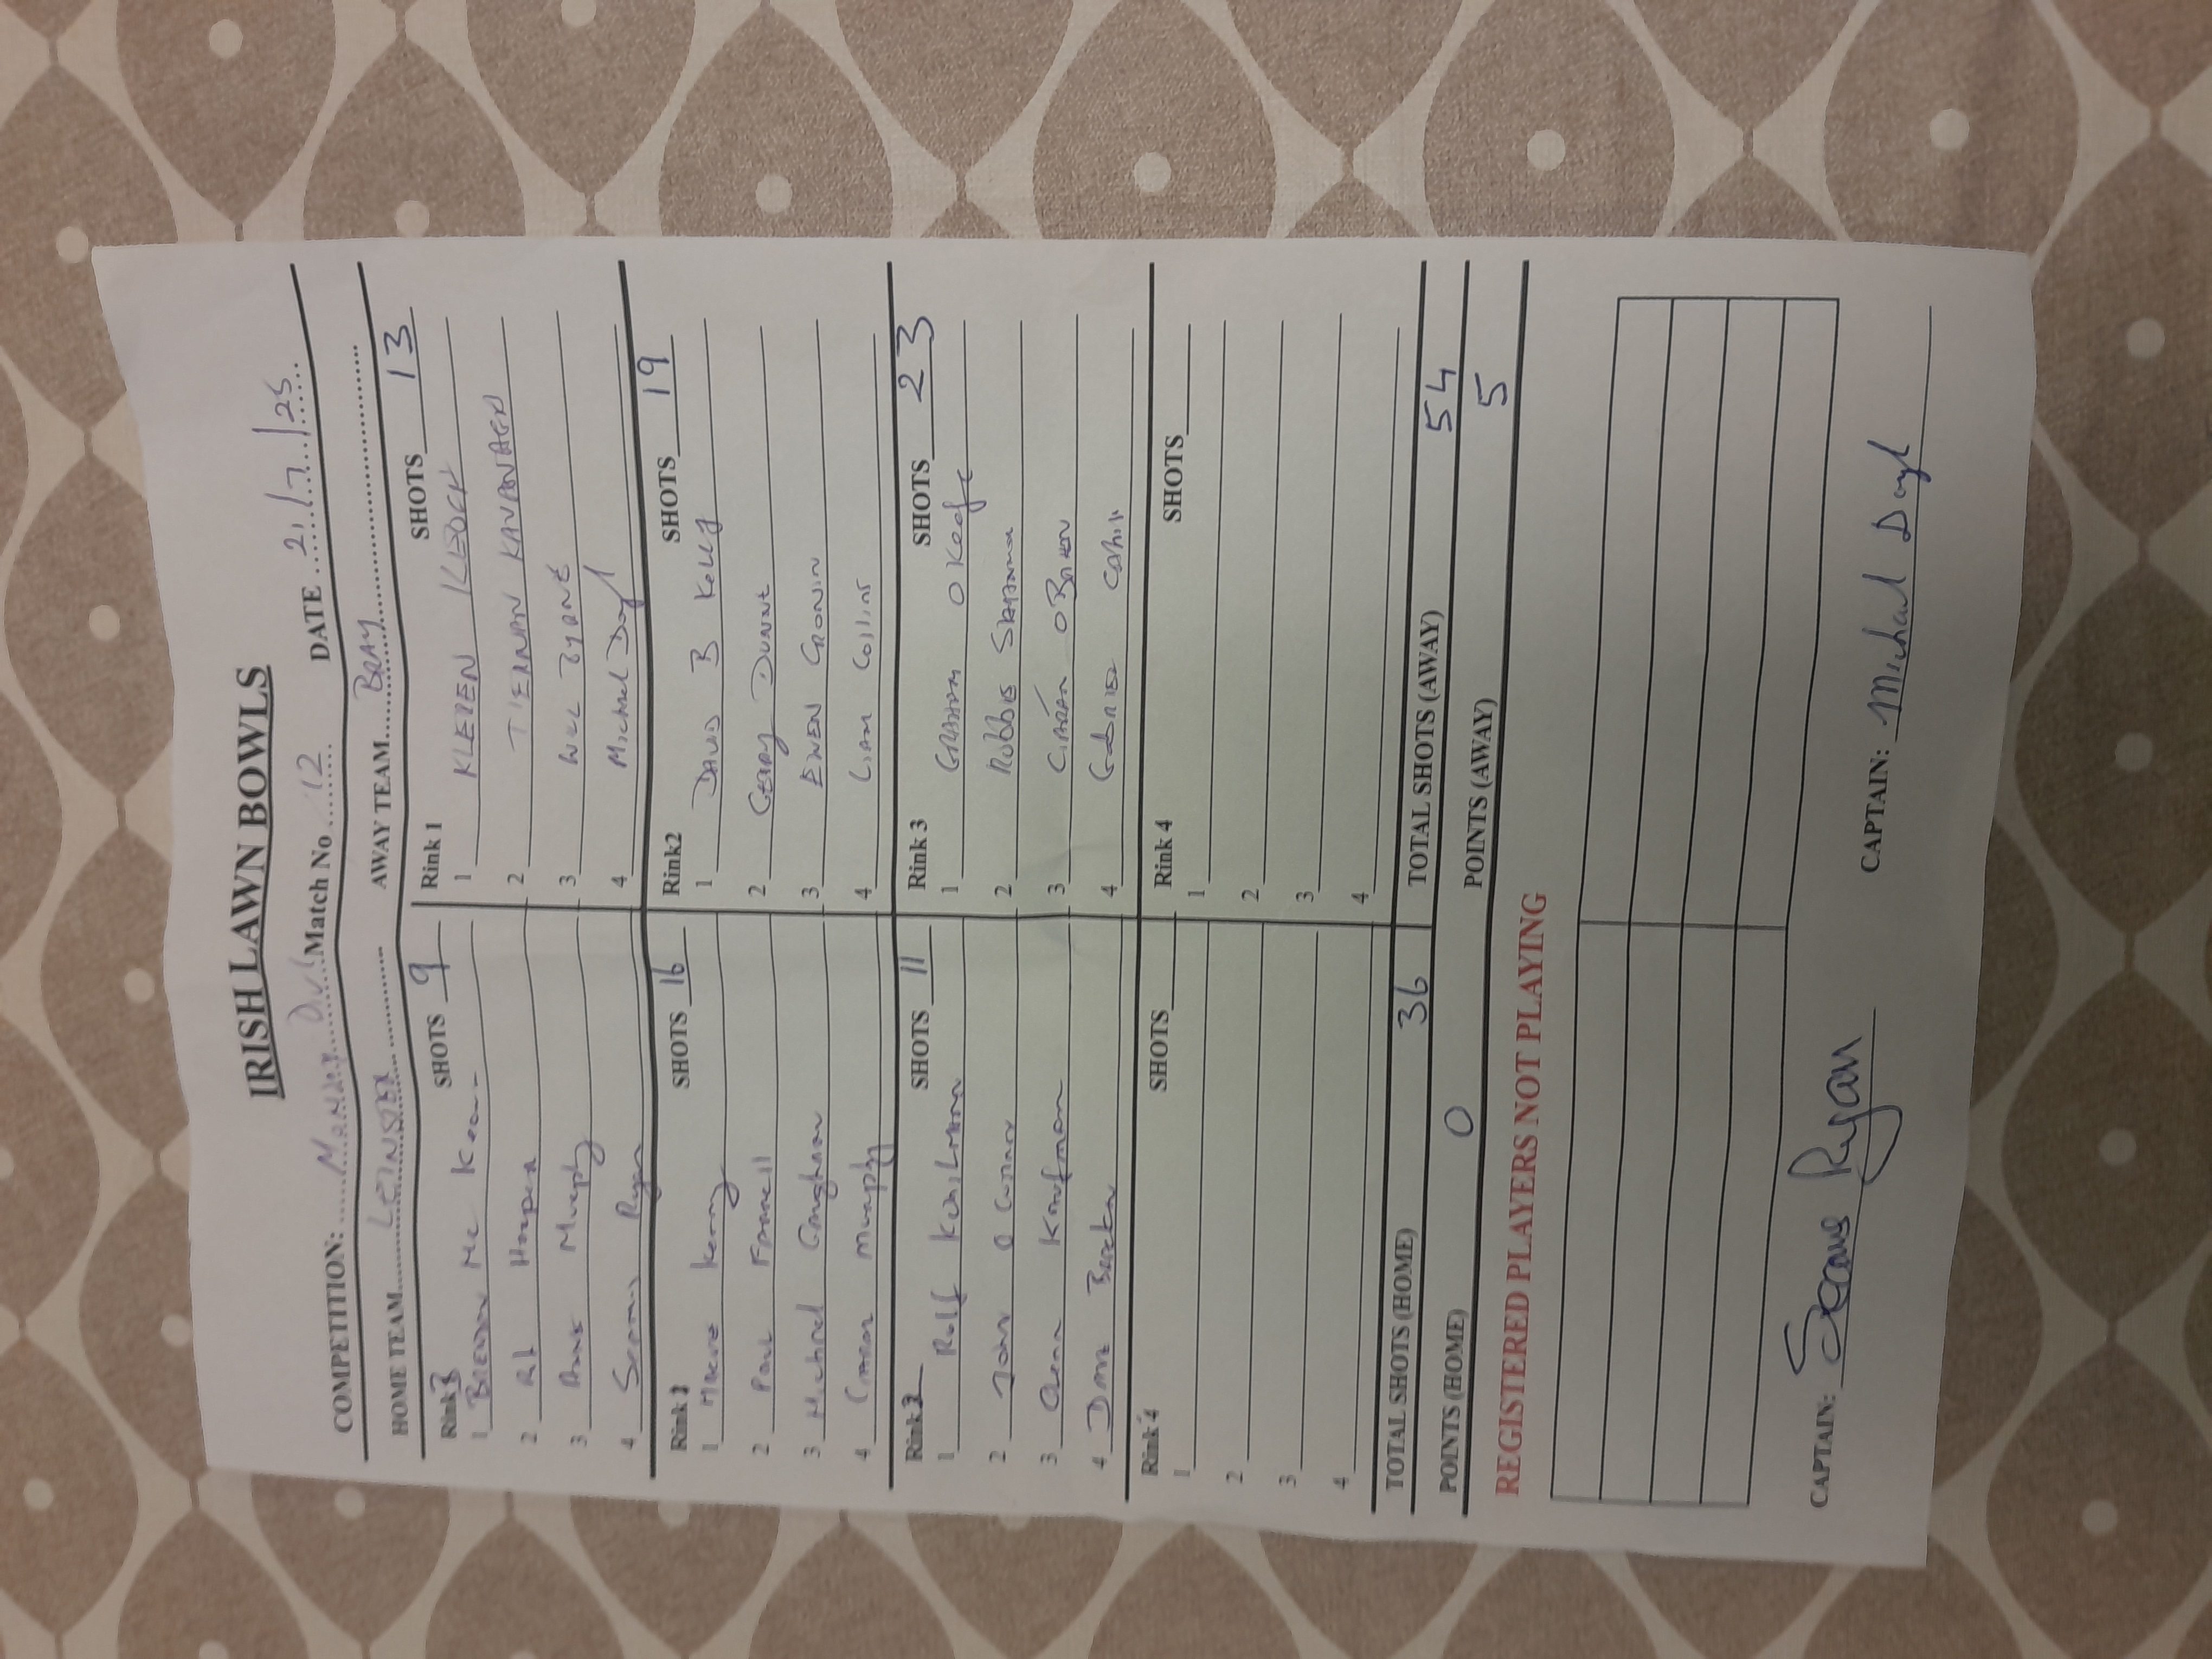 IRISH LAWN BOWLS
COMPETITION: Monday Div 1 Match No 12 DATE 21/7/25
HOME TEAM LEINSTER AWAY TEAM BRAY
Rink 3 SHOTS 9 Rink 1 SHOTS 13
1 BRENDAN Mc Keon 1 KLEVEN
2 Hooper 2 TIERNAN KAVANAGH
3 Murphy 3 BYRNE
4 Seamus Ryan 4 Michael Doyl
Rink SHOTS 16 Rink2 SHOTS 19
1 Kenny 1 DAVID B Kelly
2 Paul Farrell 2 Gerry DUNNE
3 Michael 3 EWEN CRONIN
4 Ciaran Murphy 4 Liam Collins
Rink SHOTS 11 Rink 3 SHOTS 23
1 Rolf 1 GRAHAM O Keefe
2 John O 2 Robbie
3 Kaufman 3 CIARÁN O BRIEN
4 4 Cahill
Rink 4 SHOTS Rink 4 SHOTS
1 1
2 2
3 3
4 4
TOTAL SHOTS (HOME) 36 TOTAL SHOTS (AWAY) 54
POINTS (HOME) 0 POINTS (AWAY) 5
REGISTERED PLAYERS NOT PLAYING
CAPTAIN: Seamus Ryan CAPTAIN: Michael Doyl